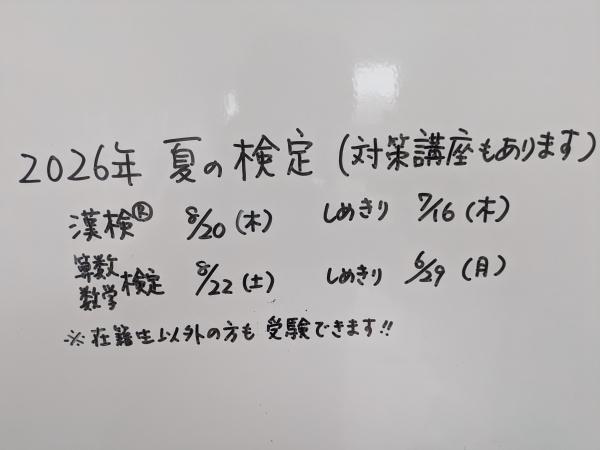 2026年 夏の検定 (対策講座もあります)
漢検® 8/20 (木) しめきり 7/16 (木)
算数
数学 検定 8/22 (土) しめきり 6/29 (月)
※在籍生以外の方も 受験できます!!